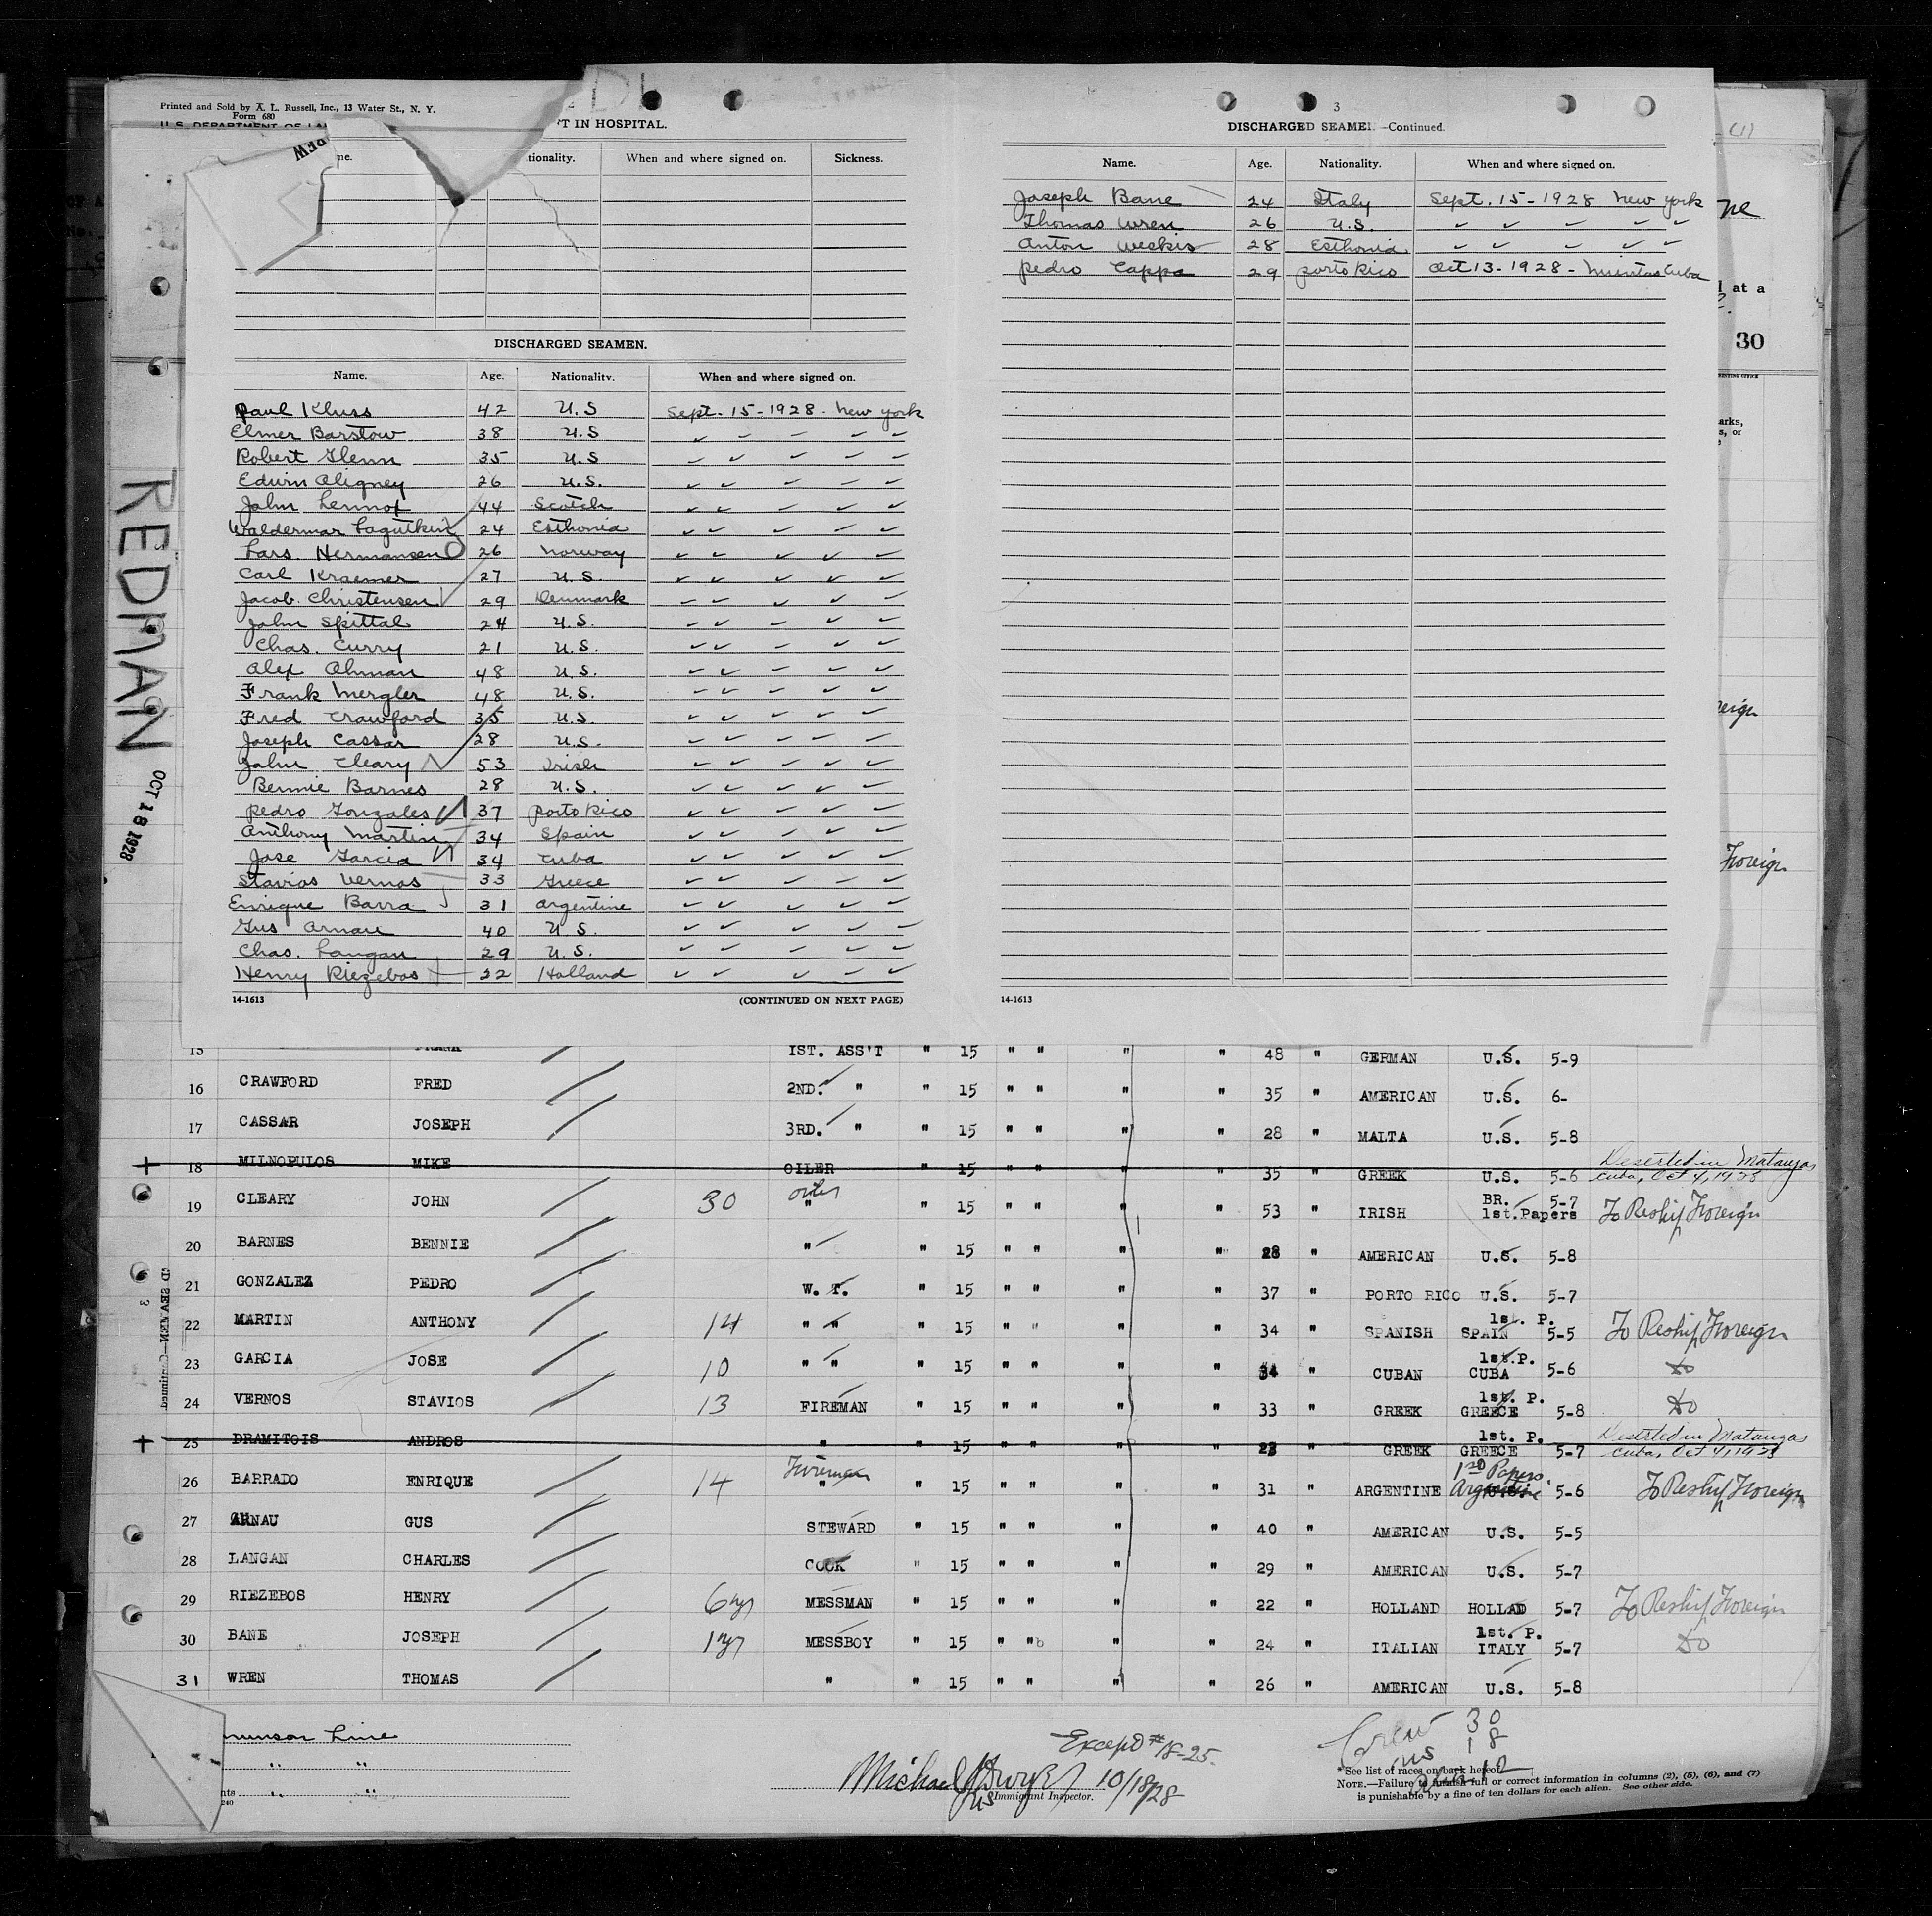 Printed and Sold by A. L. Russell, Inc., 13 Water St., N. Y.
Form 680
FT IN HOSPITAL.
tionality. When and where signed on. Sickness.
DISCHARGED SEAMEN.
Name. Age. Nationality. When and where signed on.
Paul Kluss 42 U.S Sept. 15-1928. New York
Elmer Barstow 38 U.S
Robert Glenn 35 U.S
Edwin Aligney 26 U.S.
John Lennox 44 Scotch
Waldermar Lagutkin 24 Esthonia
Lars. Hermansen 26 Norway
Carl Kraemer 27 U.S.
Jacob Christensen 29 Denmark
John Spittal 24 U.S.
Chas. Curry 21 U.S.
Alex Ohman 48 U.S.
Frank Mergler 48 U.S.
Fred Crawford 35 U.S.
Joseph Cassar 28 U.S.
John Cleary 53 Irish
Bennie Barnes 28 U.S.
Pedro Gonzales 37 Porto Rico
Anthony Martin 34 Spain
Jose Garcia 34 Cuba
Stavios Vernos 33 Greece
Enrique Barra 31 Argentine
Gus Arnau 40 U S.
Chas. Langan 29 U.S.
Henry Riezebos 22 Holland
14-1613 (CONTINUED ON NEXT PAGE)
3
DISCHARGED SEAMEN.—Continued.
Name. Age. Nationality. When and where signed on.
Joseph Bane 24 Italy Sept. 15-1928 New York
Thomas Wren 26 U.S.
Anton Weskis 28 Esthonia
Pedro Cappa 29 Porto Rico Oct 13-1928- Cuba
14-1613
(1)
at a
30
Foreign
REDMAN
OCT 18 1928
15 FRANK 1ST. ASS'T " 15 " " " " 48 " GERMAN U.S. 5-9
16 CRAWFORD FRED 2ND. " " 15 " " " " 35 " AMERICAN U.S. 6-
17 CASSAR JOSEPH 3RD. " " 15 " " " " 28 " MALTA U.S. 5-8
18 MILNOPULOS MIKE OILER " 15 " " " " 35 " GREEK U.S. 5-6 Deserted in Matanzas Cuba, Oct 4, 1928
19 CLEARY JOHN 30 oiler " " 15 " " " " 53 " IRISH BR. 1st.Papers 5-7 To Reship Foreign
20 BARNES BENNIE " " 15 " " " " 28 " AMERICAN U.S. 5-8
21 GONZALEZ PEDRO W. T. " 15 " " " " 37 " PORTO RICO U.S. 5-7
22 MARTIN ANTHONY 14 " " " 15 " " " " 34 " SPANISH 1st. P. SPAIN 5-5 To Reship Foreign
23 GARCIA JOSE 10 " " " 15 " " " " 34 " CUBAN 1st.P. CUBA 5-6 Do
24 VERNOS STAVIOS 13 FIREMAN " 15 " " " " 33 " GREEK 1st. P. GREECE 5-8 Do
25 DRAMITOIS ANDROS " " 15 " " " " 28 " GREEK 1st. P. GREECE 5-7 Deserted in Matanzas Cuba, Oct 4, 1928
26 BARRADO ENRIQUE 14 Fireman " " 15 " " " " 31 " ARGENTINE 1st Papers. Argentine 5-6 To Reship Foreign
27 ARNAU GUS STEWARD " 15 " " " " 40 " AMERICAN U.S. 5-5
28 LANGAN CHARLES COOK " 15 " " " " 29 " AMERICAN U.S. 5-7
29 RIEZEBOS HENRY 6 MESSMAN " 15 " " " " 22 " HOLLAND HOLLAD 5-7 To Reship Foreign
30 BANE JOSEPH 1 MESSBOY " 15 " " " " 24 " ITALIAN 1st. P. ITALY 5-7 Do
31 WREN THOMAS " " 15 " " " " 26 " AMERICAN U.S. 5-8
Munson Line
Except #18-25.
10/18/28
Immigrant Inspector.
Crew 30
US 18
12
* See list of races on back hereof.
NOTE.—Failure to furnish full or correct information in columns (2), (5), (6), and (7)
is punishable by a fine of ten dollars for each alien. See other side.